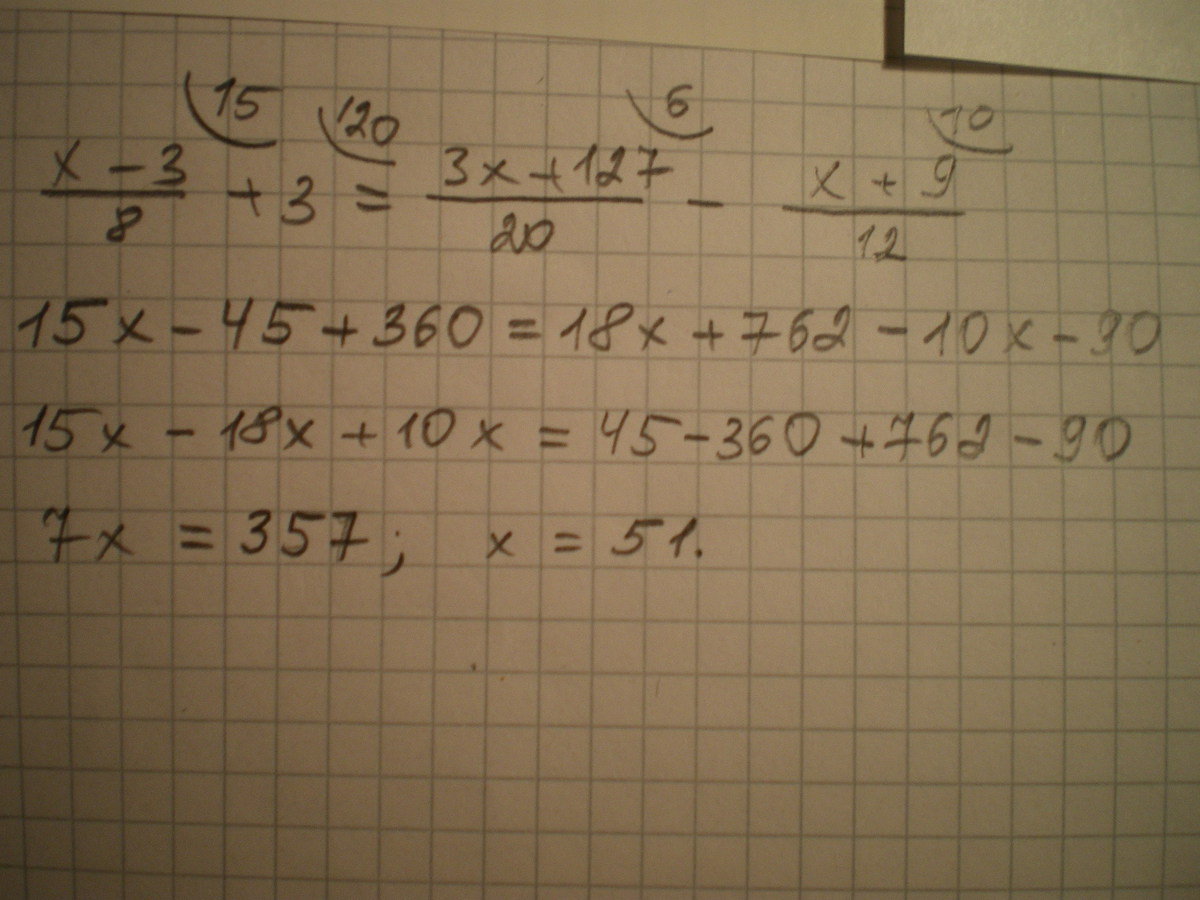 15 120 6 10
x - 3 3x + 127 x + 9
+ 3 = -
8 20 12
15x - 45 + 360 = 18x + 762 - 10x - 90
15x - 18x + 10x = 45 - 360 + 762 - 90
7x = 357; x = 51.